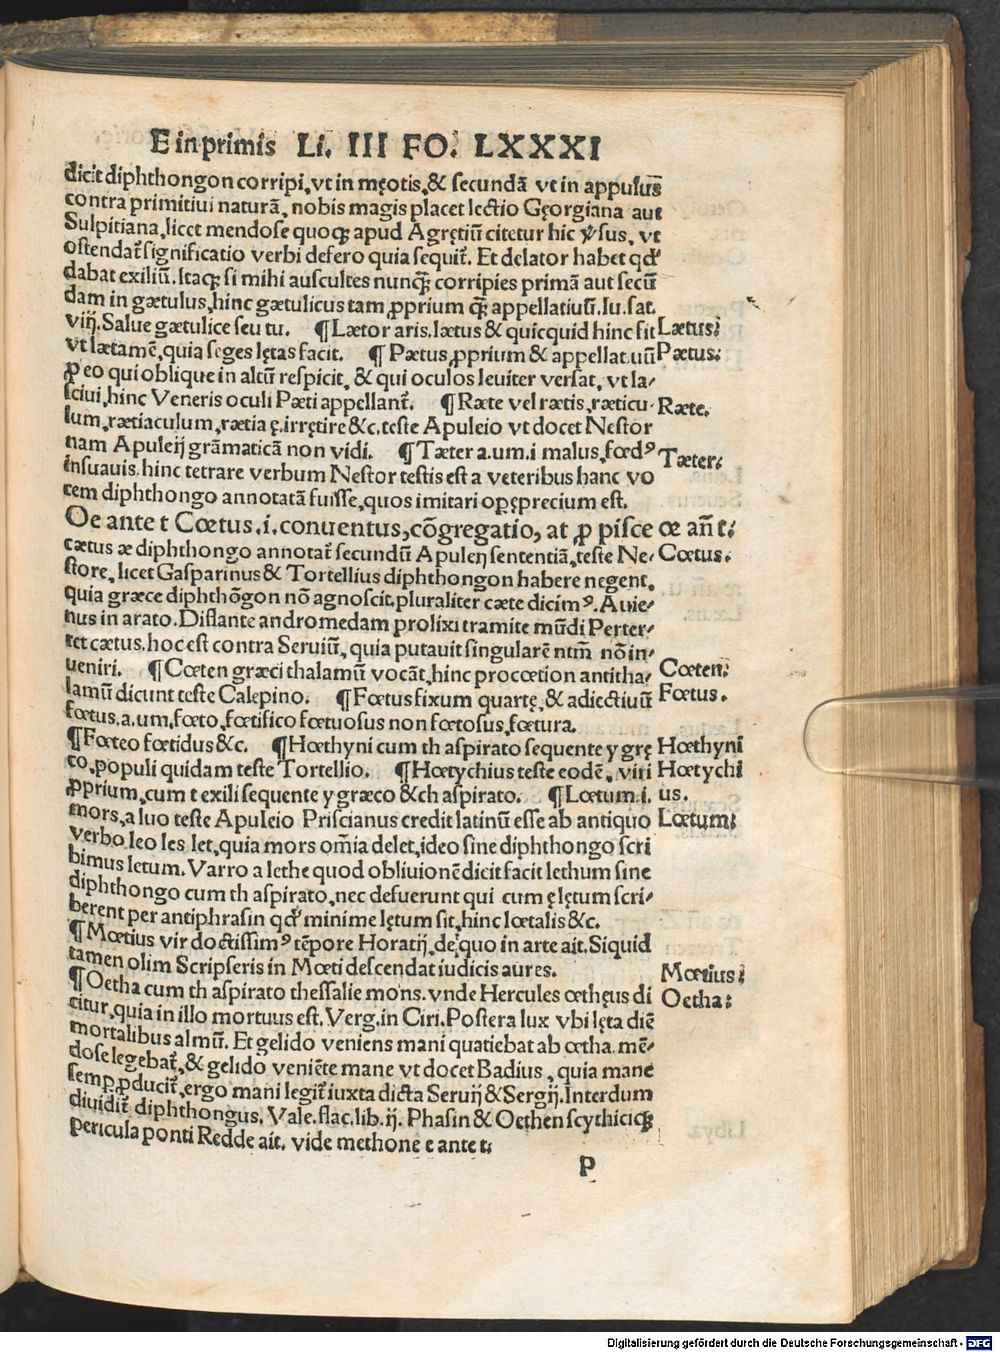 E in primis Li. III FO. LXXXI
dicit diphthongon corripi, vt in męotis, & secundā vt in appulus
contra primitiui naturā, nobis magis placet lectio Gęorgiana aut
Sulpitiana, licet mendose quoqꝫ apud Agrętiū citetur hic ꝟsus, vt
ostendat᷑ significatio verbi defero quia sequit᷑. Et delator habet qđ
dabat exiliū. Itaqꝫ si mihi auscultes nunqꝫ corripies primā aut secū
dam in gætulus, hinc gætulicus tam ꝓprium qꝫ appellatiuū. Iu. sat.
viij. Salue gætulice seu tu. ¶ Lætor aris. lætus & quicquid hinc fit Lætus:
vt lætamē, quia seges lętas facit. ¶ Pætus, ꝓprium & appellat. uū Pætus:
ꝓ eo qui oblique in altū respicit, & qui oculos leuiter versat, vt la/
sciui, hinc Veneris oculi Pæti appellant᷑. ¶ Ræte vel rætis, ræticu- Ræte.
lum, rætiaculum, rætia ę, irrętire &c. teste Apuleio vt docet Nestor
nam Apuleij grāmaticā non vidi. ¶ Tæter a. um. i malus, fœdꝰ Tæter:
insuauis, hinc tetrare verbum Nestor testis est a veteribus hanc vo
cem diphthongo annotatā fuisse, quos imitari opęprecium est.
Oe ante t Cœtus .i. conuentus, cōgregatio, at ꝓ pisce œ añ t:
cætus æ diphthongo annotat᷑ secundū Apuleij sententiā, teste Ne- Cœtus.
store, licet Gasparinus & Tortellius diphthongon habere negent,
quia græce diphthōgon nō agnoscit, pluraliter cæte dicimꝰ. Auie/
nus in arato. Distante andromedam prolixi tramite mūdi Perter/
ret cætus, hoc est contra Seruiū, quia putauit singularē ntm̄ nō in/
ueniri. ¶ Cœten græci thalamū vocāt, hinc procœtion antitha/ Cœten:
lamū dicunt teste Calepino. ¶ Fœtus fixum quartę, & adiectiuū Fœtus.
fœtus, a, um, fœto, fœtifico fœtuosus non fœtosus, fœtura.
¶ Fœteo fœtidus &c. ¶ Hœthyni cum th aspirato sequente y grę Hœthyni
co, populi quidam teste Tortellio. ¶ Hœtychius teste eodē, viri Hœtychi
ꝓprium, cum t exili sequente y græco & ch aspirato. ¶ Lœtum .i. us.
mors, a luo teste Apuleio Priscianus credit latinū esse ab antiquo Lœtum:
verbo leo les let, quia mors om̄ia delet, ideo sine diphthongo scri
bimus letum. Varro a lethe quod obliuionē dicit facit lethum sine
diphthongo cum th aspirato, nec defuerunt qui cum ę lętum scri/
berent per antiphrasin qđ minime lętum sit, hinc lœtalis &c.
¶ Mœtius vir doctissimꝰ tēpore Horatij, de quo in arte ait. Siquid
tamen olim Scripseris in Mœti descendat iudicis aures. Mœtius:
¶ Oetha cum th aspirato thessalie mons. vnde Hercules œthęus di Oetha:
citur, quia in illo mortuus est. Verg. in Ciri. Postera lux vbi lęta diē
mortalibus almū. Et gelido veniens mani quatiebat ab œtha. mē/
dose legebat᷑, & gelido veniēte mane vt docet Badius, quia mane
semp̱ ꝓducit᷑, ergo mani legit᷑ iuxta dicta Seruij & Sergij. Interdum
diuidit᷑ diphthongus. Vale. flac. lib. ij. Phasin & Oethen scythiciqꝫ
pericula ponti Redde ait. vide methone e ante t:
P
Digitalisierung gefördert durch die Deutsche Forschungsgemeinschaft - DFG